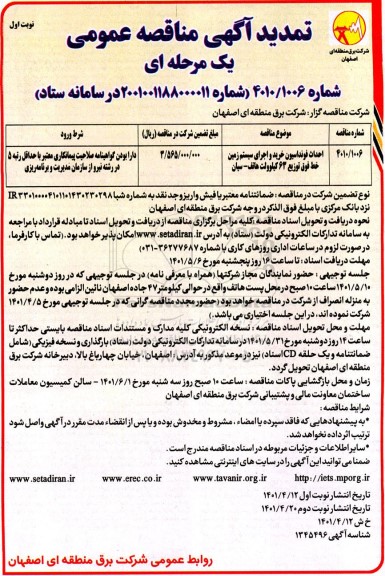 نوبت اول
شرکت برق منطقه‌ای
اصفهان
تمدید آگهی مناقصه عمومی
یک مرحله ای
شماره ۴۰۱۰/۱۰۰۶ (شماره ۲۰۰۱۰۰۱۱۸۸۰۰۰۰۱۱ در سامانه ستاد)
شرکت مناقصه گزار: شرکت برق منطقه ای اصفهان
شماره مناقصه موضوع مناقصه مبلغ تضمین شرکت در مناقصه (ریال) شرط ورود
۴۰۱۰/۱۰۰۶ احداث فونداسیون خرید و اجرای سیستم زمین خط فوق توزیع ۶۳ کیلوولت هاتف - سیان ۳/۵۶۵/۰۰۰/۰۰۰ دارا بودن گواهینامه صلاحیت پیمانکاری معتبر با حداقل رتبه ۵ در رشته نیرو از سازمان مدیریت و برنامه‌ریزی
نوع تضمین شرکت در مناقصه: ضمانتنامه معتبر یا فیش واریز وجه نقد به شماره شبا IR
نزد بانک مرکزی با مبلغ فوق الذکر در وجه شرکت برق منطقه‌ای اصفهان
نحوه دریافت و تحویل اسناد مناقصه: کلیه مراحل برگزاری مناقصه از دریافت و تحویل اسناد تا مبادله قرارداد با مراجعه
به سامانه تدارکات الکترونیکی دولت (ستاد) به آدرس www.setadiran.ir امکان پذیر خواهد بود. (تماس با کارفرما،
در صورت لزوم در ساعات اداری روزهای کاری با شماره ۳۶۲۷۷۶۸۷-۰۳۱)
مهلت دریافت اسناد: تا ساعت ۱۶ روز پنجشنبه مورخ ۱۴۰۱/۵/۶
جلسه توجیهی: حضور نمایندگان مجاز شرکتها (همراه با معرفی نامه) در جلسه توجیهی که در روز دوشنبه مورخ
۱۴۰۱/۵/۱۰ ساعت ۱۰ صبح در محل پست هاتف واقع در حوالی کیلومتر ۴۷ جاده اصفهان نائین الزامی بوده و عدم حضور
به منزله انصراف از شرکت در مناقصه خواهد بود (حضور مجدد مناقصه گرانی که در جلسه توجیهی مورخ ۱۴۰۱/۴/۵
شرکت نموده اند، در این جلسه اختیاری می باشد.)
مهلت و محل تحویل اسناد مناقصه: نسخه الکترونیکی کلیه مدارک و مستندات اسناد مناقصه بایستی حداکثر تا
ساعت ۱۴ روز دوشنبه مورخ ۱۴۰۱/۵/۳۱ در سامانه تدارکات الکترونیکی دولت (ستاد) بارگذاری و نسخه فیزیکی (شامل
ضمانتنامه و یک حلقه CD اسناد) نیز در موعد مذکور به آدرس: اصفهان، خیابان چهارباغ بالا، دبیرخانه شرکت برق
منطقه ای اصفهان تحویل گردد.
زمان و محل بازگشایی پاکات مناقصه: ساعت ۱۰ صبح روز سه شنبه مورخ ۱۴۰۱/۶/۱ - سالن کمیسیون معاملات
ساختمان معاونت مالی و پشتیبانی شرکت برق منطقه ای اصفهان
شرایط مناقصه:
*به پیشنهادهایی که فاقد سپرده یا امضاء، مشروط و مخدوش بوده و یا پس از انقضاء مدت مقرر در آگهی واصل شود
ترتیب اثر داده نخواهد شد.
*سایر اطلاعات و جزئیات مربوطه در اسناد مناقصه مندرج است.
ضمنا می توانید این آگهی را در سایت های اینترنتی مشاهده کنید.
www.setadiran.ir www.erec.co.ir www.tavanir.org.ir http://iets.mporg.ir
تاریخ انتشار نوبت اول ۱۴۰۱/۴/۱۲
تاریخ انتشار نوبت دوم ۱۴۰۱/۴/۲۰
خ ش ۱۴۰۱/۴/۱۲
شناسه آگهی ۱۳۴۵۴۹۶
روابط عمومی شرکت برق منطقه ای اصفهان